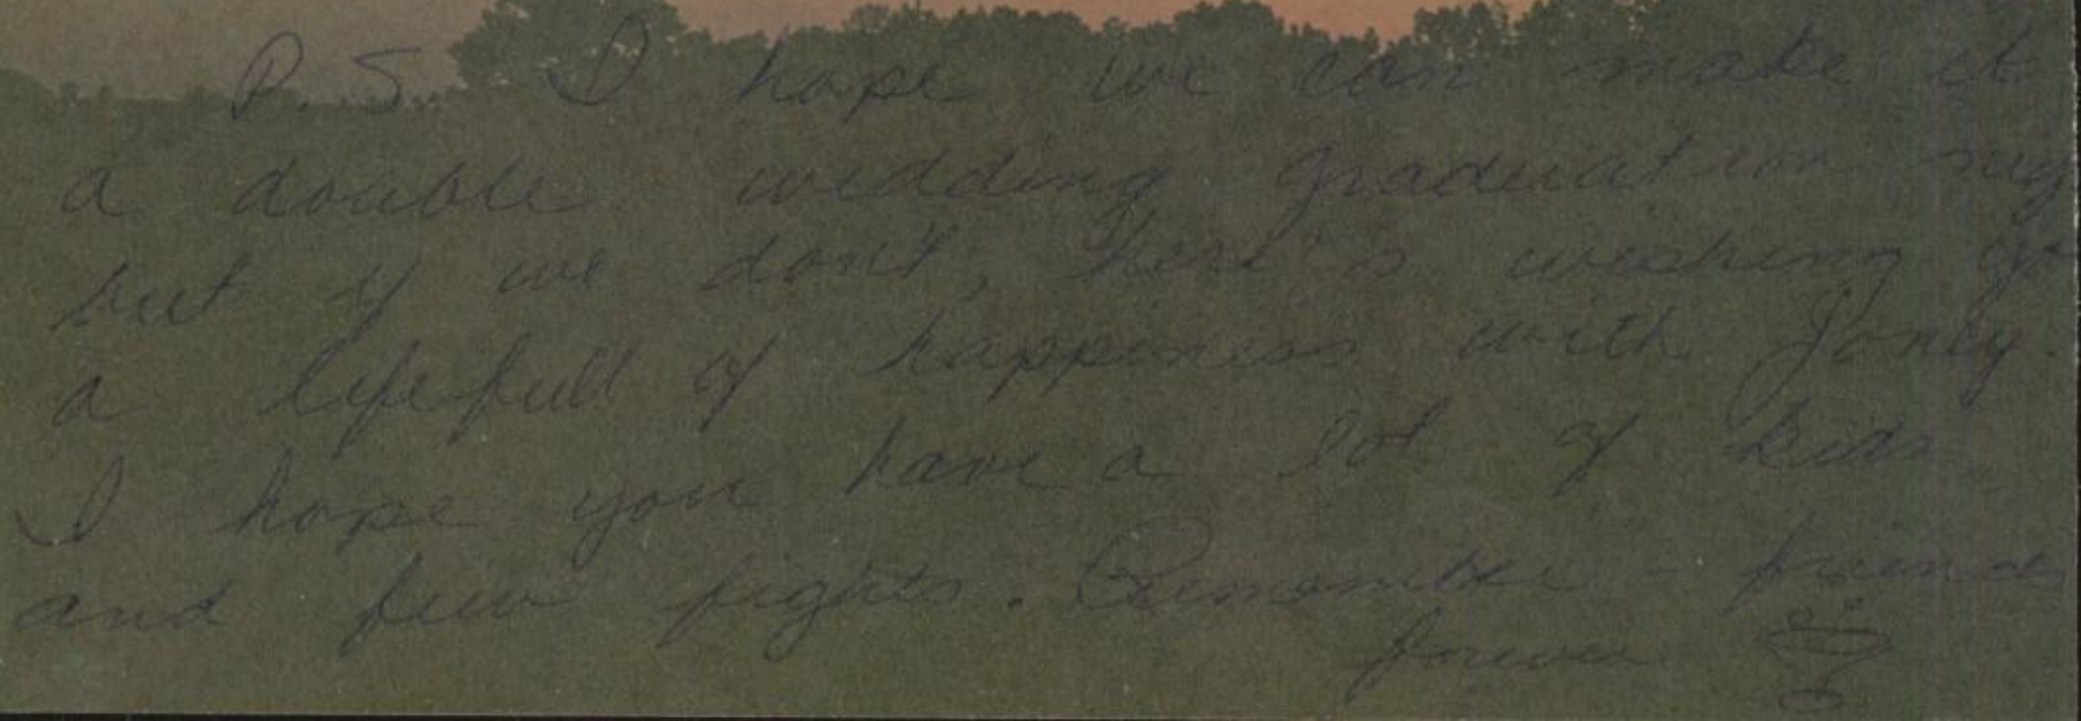 P.S. I hope we can make it
a double wedding graduation
but if we don't, here's wishing
a lifefull of happiness with Joney.
I hope you have a lot of kids
and few fights. Remember - friends
forever